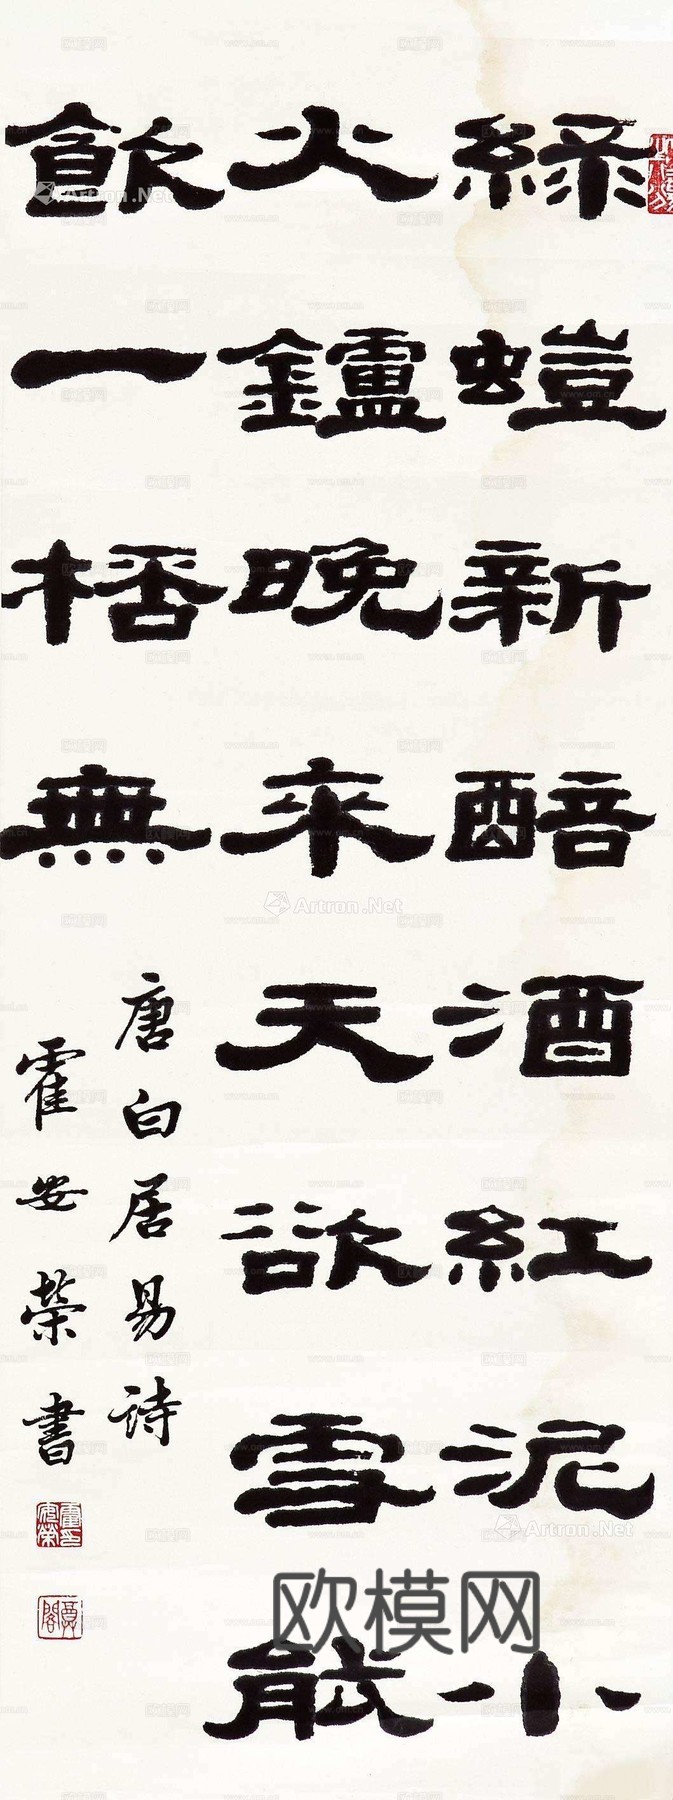 綠螘新醅酒紅泥小
火鑪晚來天欲雪能
飲一桮無
唐白居易詩
霍安榮書
Artron.Net
Artron.Net
Artron.Net
欧模网